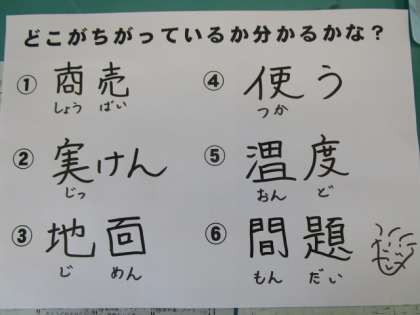 どこがちがっているか分かるかな？
①商売
しょうばい
②実けん
じっ
③地面
じめん
④使う
つか
⑤温度
おんど
⑥間題
もんだい